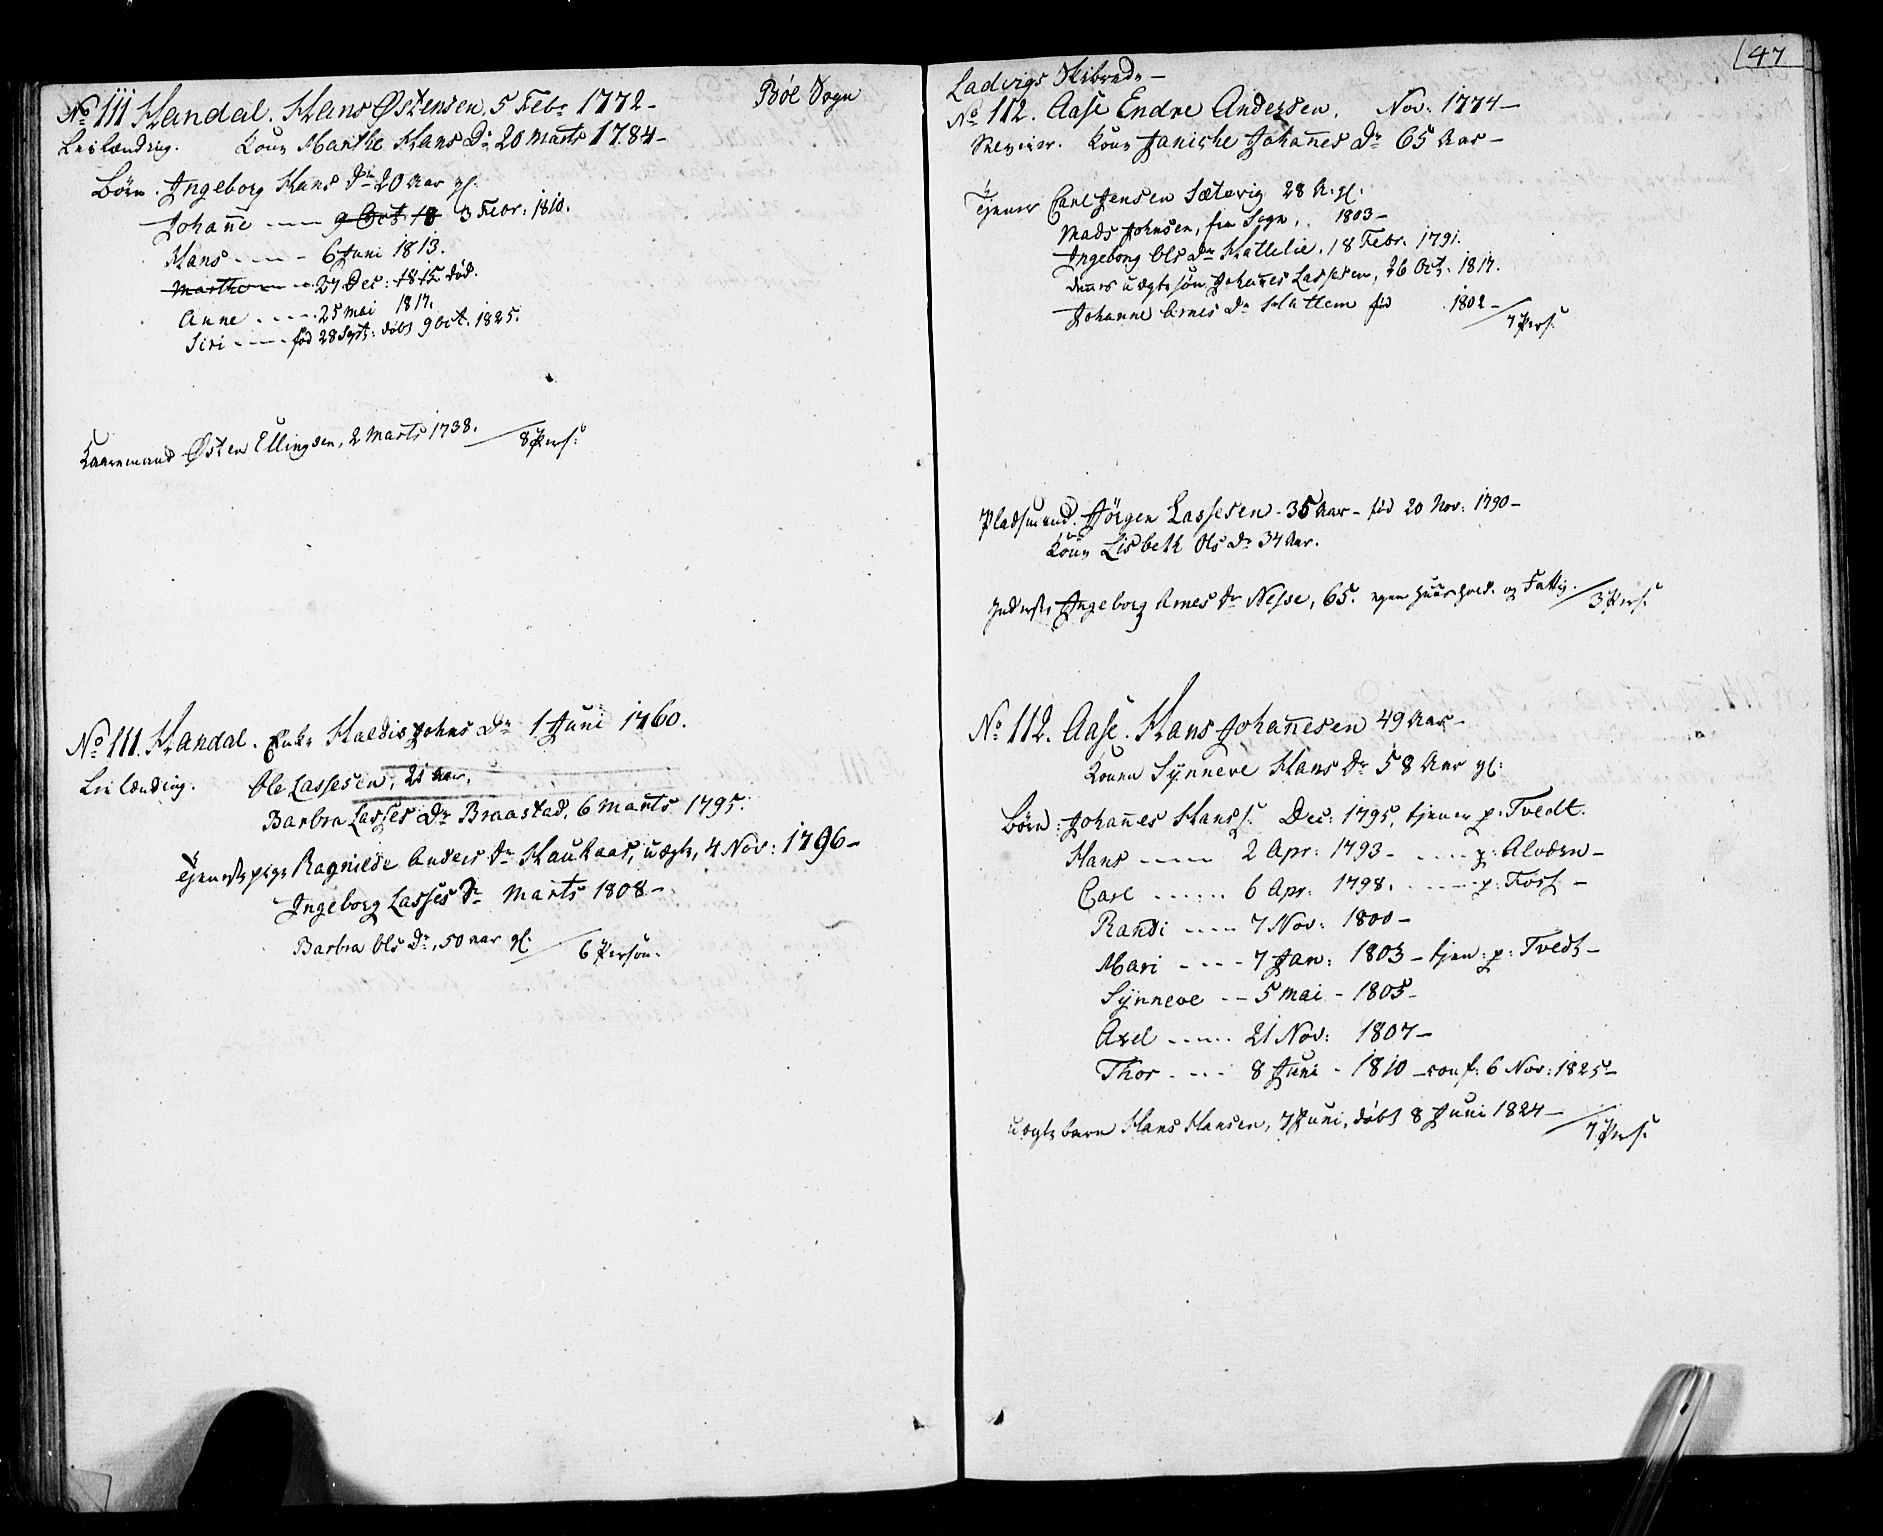 No 111 Handal. Hans Østensen, 5 Febr 1772 - Böe Sogn
Leilænding. Kone Marthe Hans Dr 20 Marts 1784 -
Börn. Ingeborg Hans Dr 20 Aar gl:
Johanne ---- 9 Oct 18 3 Febr: 1810.
Hans ---- 6 Juni 1813.
Marthe --- 27 Dec: 1815 död.
Anne ---- 25 mai 1817.
Siri ---- föd 28 Sept: döbt 9 Oct. 1825.
Kaarmand Østen Ellingsen, 2 Marts 1738. / 8 Pers:
No 111. Handal. Enke Haldis Johns Dr 1 Juni 1760.
Leilænding. Ole Lassesen, 21 Aar.
Barbra Lasses Dr Braastad, 6 Marts 1795.
Tjenestepige Ragnilde Anders Dr Haukaas, uægte, 4 Nov: 1796 -
Ingeborg Lasses Dr Marts 1808 -
Barbra Ols Dr, 50 aar gl: / 6 Person.
47
Ladvigs Skibrede -
No 112. Aase Endre Andersen. Nov: 1774 -
Kone Janiche Johannes Dr 65 Aar -
Tjener Carl Jensen Sætevig 28 A: gl:
Mads Johnsen, fra Sogn, 1803 -
Ingeborg Ols Dr Hattelie, 18 Febr: 1791.
Dennes uægte sön Johannes Lassesen, 26 Oct. 1817.
Johanne Arnes Dr Hattem föd 1802 - / 7 Pers:
Pladsmand. Jörgen Lassesen - 35 Aar - föd 20 Nov: 1790 -
Kone Lisbeth Ols Dr 34 Aar.
Inderste Ingeborg Arnes Dr Nesse, 65. egen Huushold. og Fattig. / 3 Pers:
No 112. Aase. Hans Johannesen 49 Aar -
Konen Synneve Hans Dr 58 Aar gl:
Börn: Johannes Hanss. Dec: 1795, tjener p: Tvedt.
Hans ---- 2 Apr: 1793 - ---- p: Alvøen -
Carl ---- 6 Apr: 1798. ---- p: Fors -
Randi ---- 7 Nov: 1800 -
Mari ---- 7 Jan: 1803 - tjen: p: Tvedt -
Synneve -- 5 mai - 1805 -
Axel ---- 21 Nov: 1807 -
Thor ---- 8 Juni - 1810 - conf: 6 Nov: 1825 -
uægte barn Hans Hansen, 7 Juni, döbt 8 Juni 1824 - / 7 Pers: